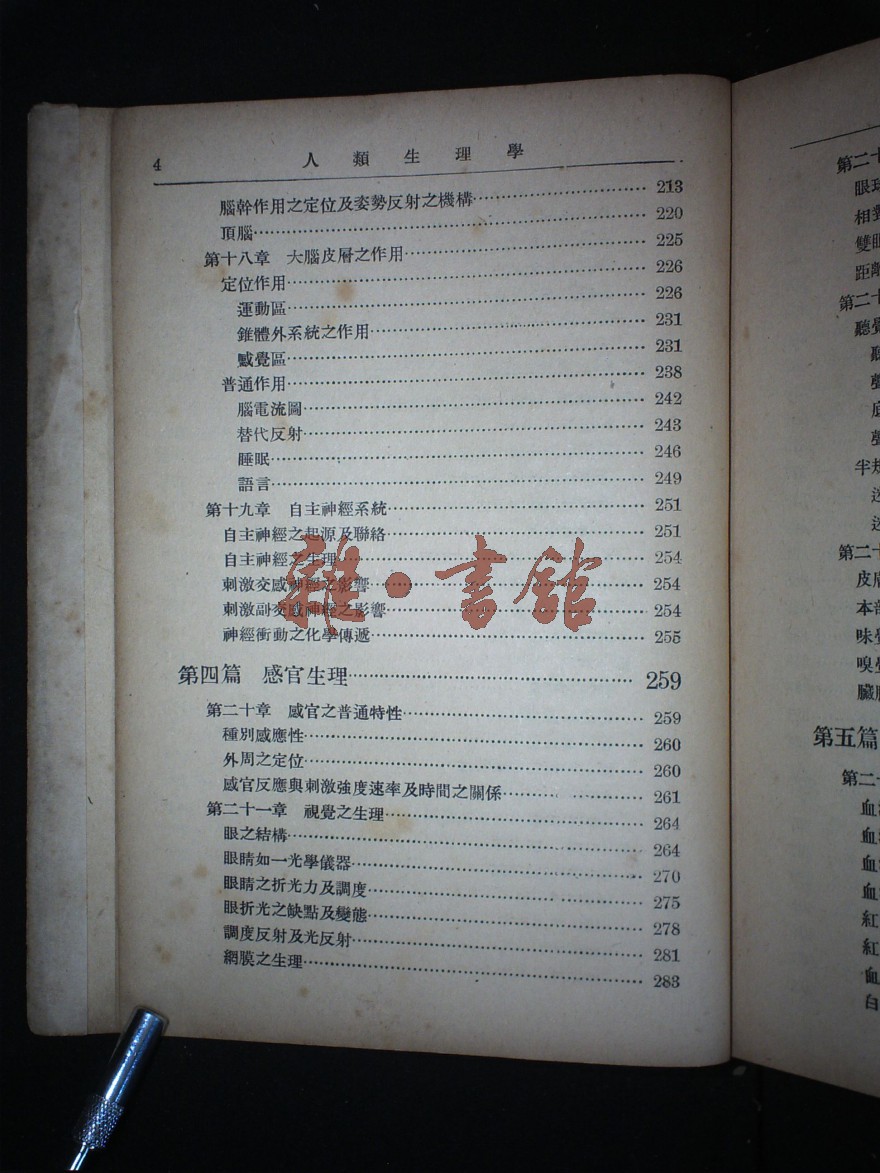 4 人類生理學
腦幹作用之定位及姿勢反射之機構 213
頂腦 220
第十八章 大腦皮層之作用 225
定位作用 226
運動區 226
錐體外系統之作用 231
感覺區 231
普通作用 238
腦電流圖 242
替代反射 243
睡眠 246
語言 249
第十九章 自主神經系統 251
自主神經之起源及聯絡 251
自主神經之生理 254
刺激交感神經之影響 254
刺激副交感神經之影響 254
神經衝動之化學傳遞 255
第四篇 感官生理 259
第二十章 感官之普通特性 259
種別感應性 260
外周之定位 260
感官反應與刺激強度速率及時間之關係 261
第二十一章 視覺之生理 264
眼之結構 264
眼睛如一光學儀器 270
眼睛之折光力及調度 275
眼折光之缺點及變態 278
調度反射及光反射 281
網膜之生理 283
雜·書館
第二十
眼球
相對
雙眼
距離
第二十
聽覺
聽
底
半規
第二十
皮膚
本部
味覺
嗅覺
臟
第五篇
第二十
血
血
血
血
紅
紅
血
白